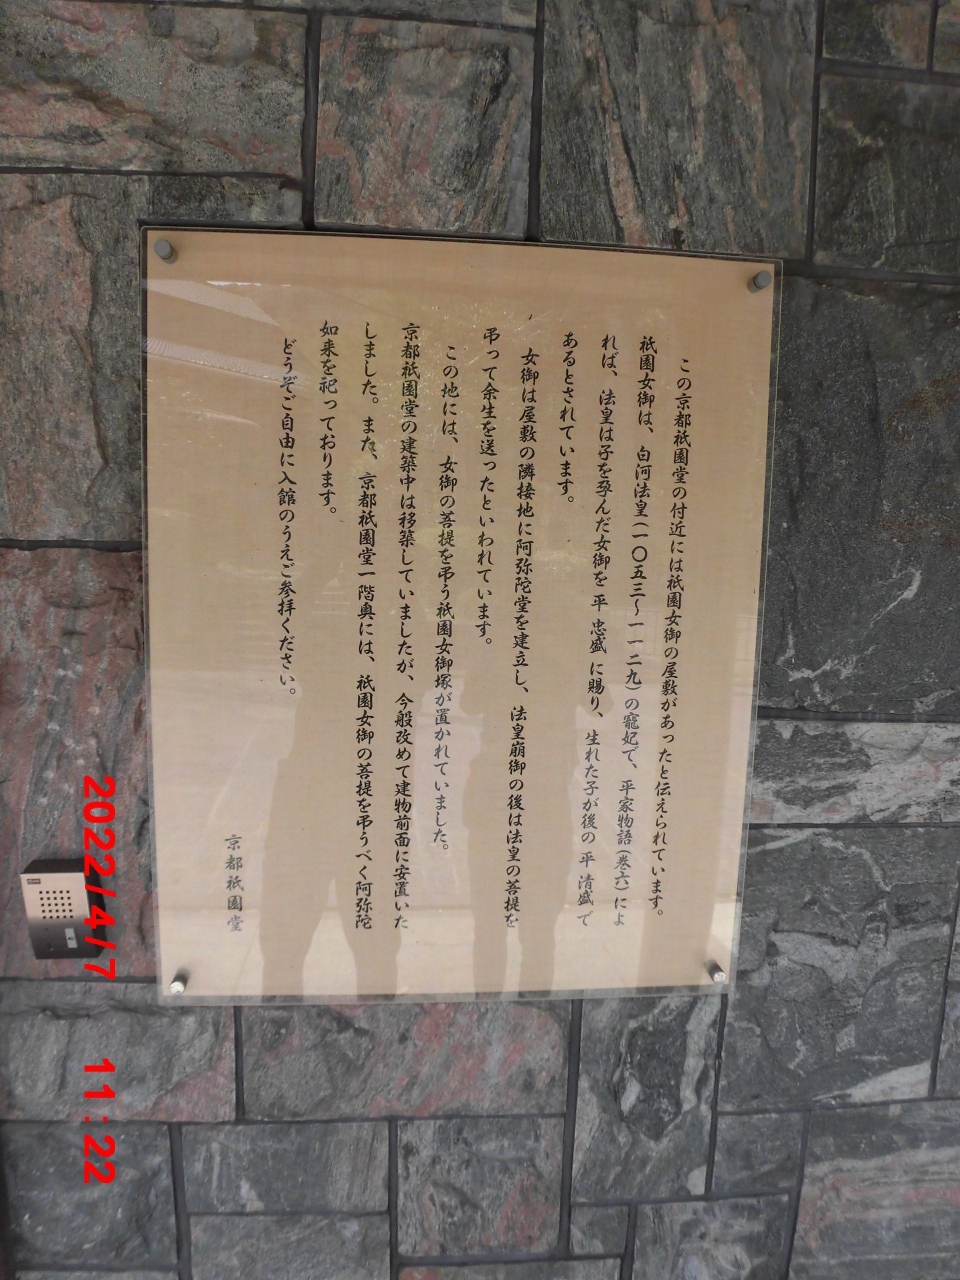 この京都祇園堂の付近には祇園女御の屋敷があったと伝えられています。
祇園女御は、白河法皇(一〇五三～一一二九)の寵妃で、平家物語(巻六)によ
れば、法皇は子を孕んだ女御を 平 忠盛 に賜り、生れた子が後の 平 清盛 で
あるとされています。
女御は屋敷の隣接地に阿弥陀堂を建立し、法皇崩御の後は法皇の菩提を
弔って余生を送ったといわれています。
この地には、女御の菩提を弔う祇園女御塚が置かれていました。
京都祇園堂の建築中は移築していましたが、今般改めて建物前面に安置いた
しました。また、京都祇園堂一階奥には、祇園女御の菩提を弔うべく阿弥陀
如来を祀っております。
どうぞご自由に入館のうえご参拝ください。
京都祇園堂
2022/4/7 11:22